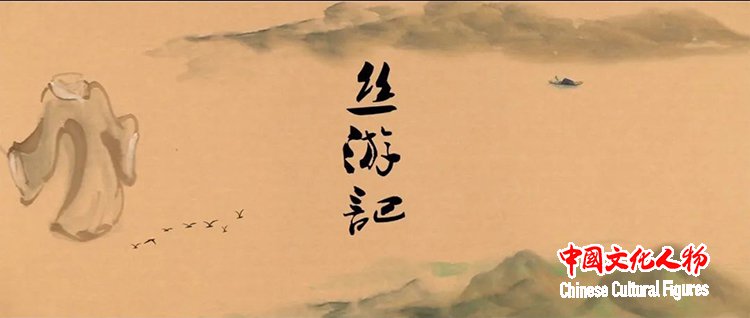 丝游記
中國文化人物
Chinese Cultural Figures